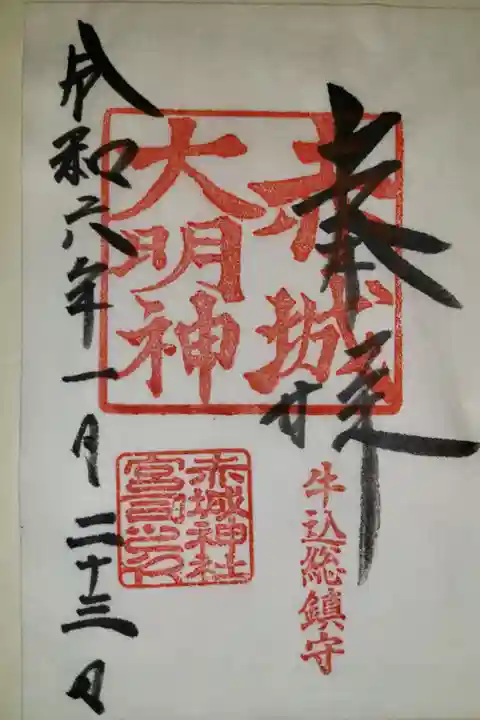 奉拝
赤城
大明神
牛込総鎮守
赤城神社
宮司之印
令和六年一月二十三日